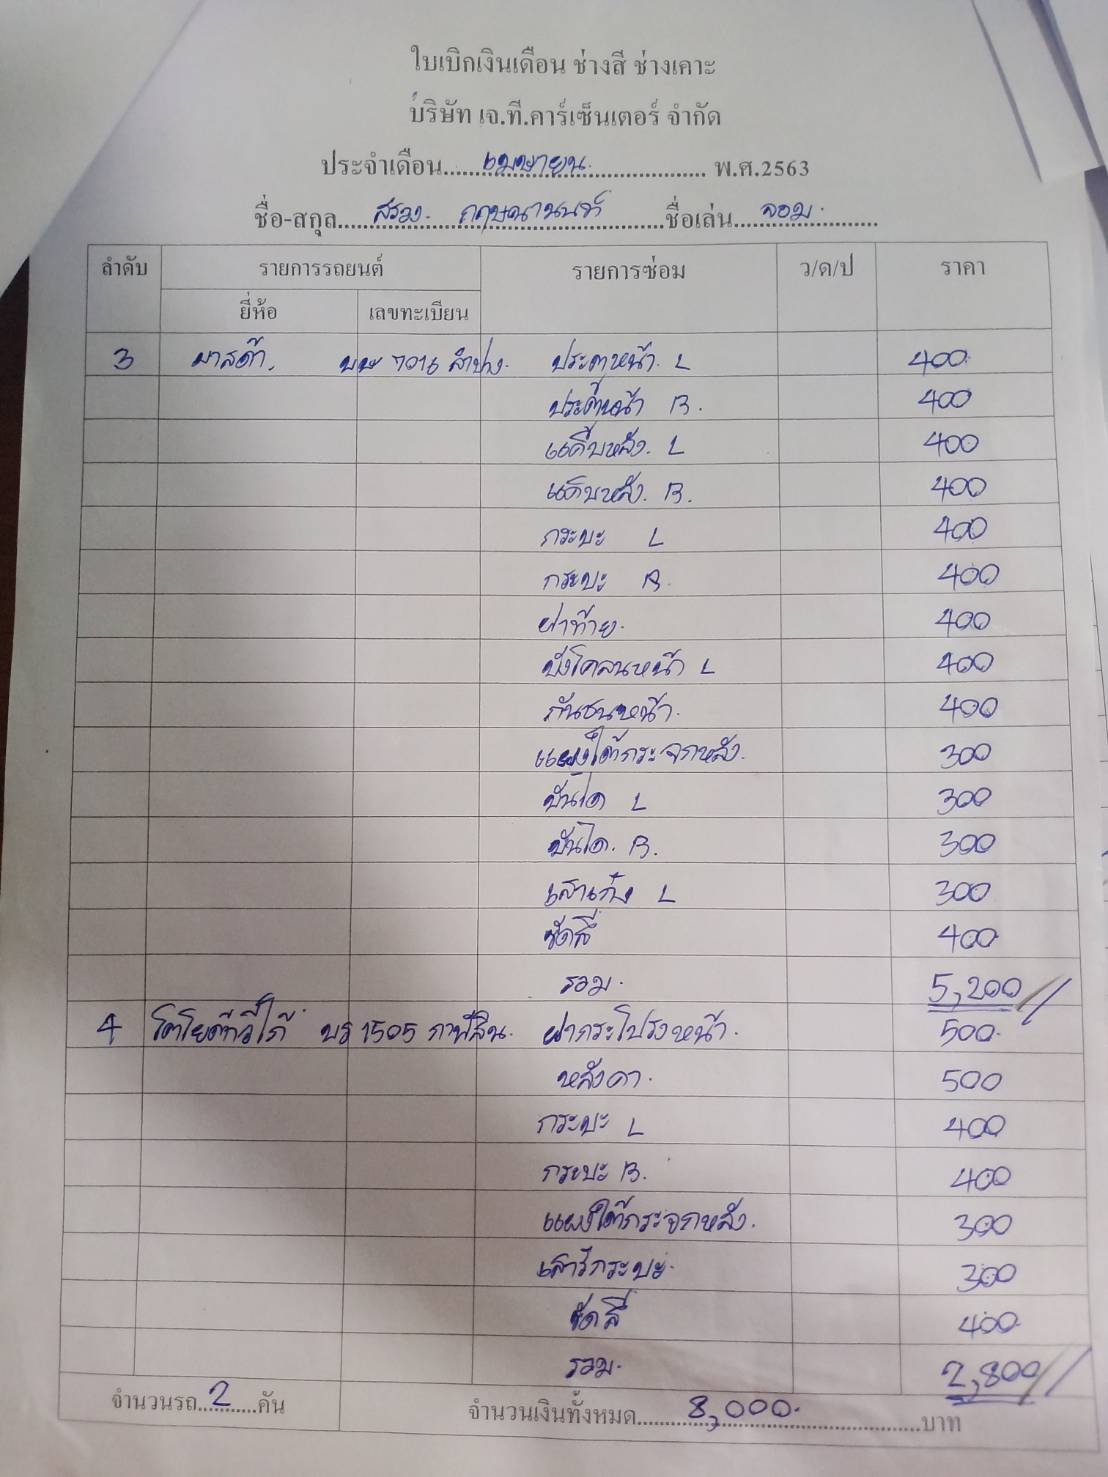 ใบเบิกเงินเดือน ช่างสี ช่างเคาะ
บริษัท เจ.ที.คาร์เซ็นเตอร์ จำกัด
ประจำเดือน.....เมษายน..... พ.ศ.2563
ชื่อ-สกุล..... กฤษดานนท์ .....ชื่อเล่น..... จอม .....
ลำดับ รายการรถยนต์ รายการซ่อม ว/ด/ป ราคา
ยี่ห้อ เลขทะเบียน
3 มาสด้า. บษ 7016 ลำปาง. ประตูหน้า. L 400
ประตูหน้า R. 400
แค็บหลัง. L 400
แค็บหลัง. R. 400
กระบะ L 400
กระบะ R. 400
ฝาท้าย. 400
บังโคลนหน้า L 400
กันชนหน้า. 400
แผงใต้กระจกหลัง. 300
บันได L 300
บันได. R. 300
เสาเก๋ง L 300
ขัดสี 400
รวม. 5,200
4 โตโยต้าวีโก้ บร 1505 กาฬสิน. ฝากระโปรงหน้า. 500
หลังคา. 500
กระบะ L 400
กระบะ R. 400
แผงใต้กระจกหลัง. 300
เสาร์กระบะ. 300
ขัดสี 400
รวม. 2,800
จำนวนรถ...2...คัน จำนวนเงินทั้งหมด.....8,000.....บาท